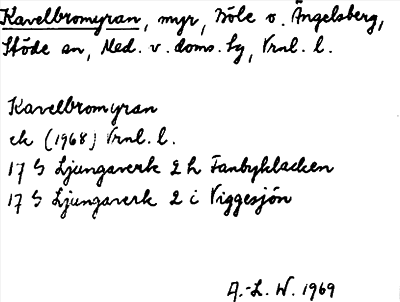 Kavelbromyran, myr, Böle o. Ängelsberg,
Stöde sn, Med. v. doms. hg, Vrnl. l.
Kavelbromyran
ek (1968) Vrnl. l.
17 G Ljungaverk 2 h Fanbyklacken
17 G Ljungaverk 2 i Viggesjön
A.-L. W. 1969